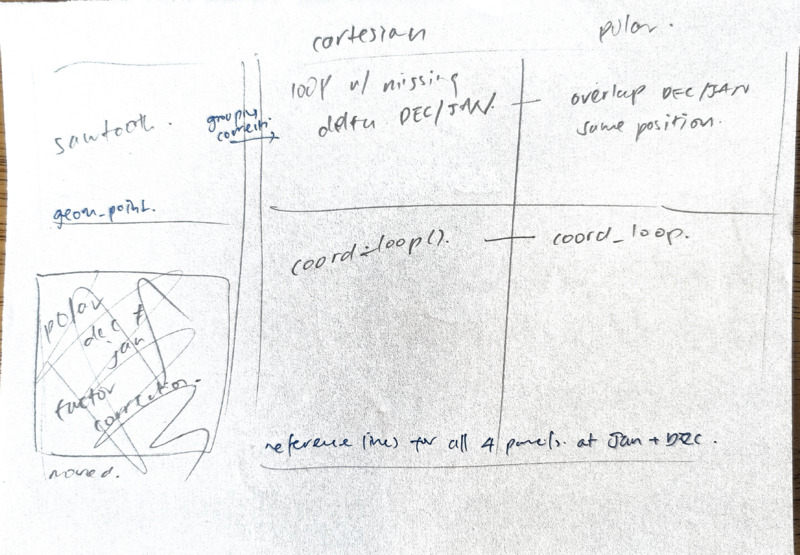 cartesian
polar.
sawtooth.
geom_point.
grouping
correctn.
loop w/ missing
delta DEC/JAN.
overlap DEC/JAN
same position.
coord_loop().
coord_loop.
polar
dec +
jan
factor
correction.
moved.
reference lines for all 4 panels. at Jan + DEC.